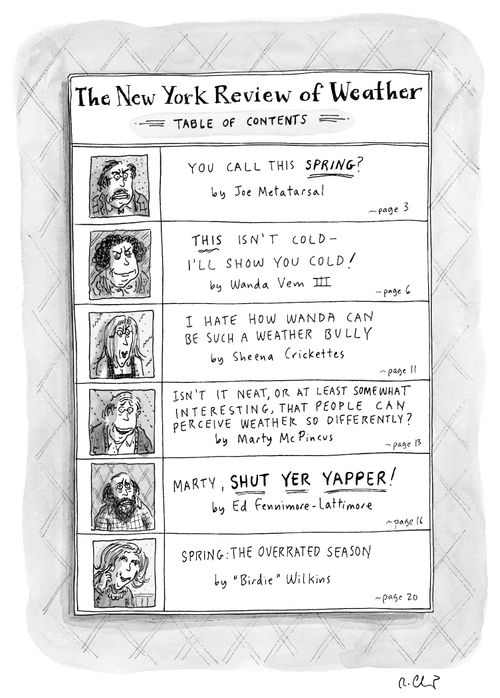 The New York Review of Weather
TABLE OF CONTENTS
YOU CALL THIS SPRING?
by Joe Metatarsal
~page 3
THIS ISN'T COLD-
I'LL SHOW YOU COLD!
by Wanda Vem III
~page 6
I HATE HOW WANDA CAN
BE SUCH A WEATHER BULLY
by Sheena Crickettes
~page 11
ISN'T IT NEAT, OR AT LEAST SOMEWHAT
INTERESTING, THAT PEOPLE CAN
PERCEIVE WEATHER SO DIFFERENTLY?
by Marty McPincus
~page 13
MARTY, SHUT YER YAPPER!
by Ed Fennimore-Lattimore
~page 16
SPRING: THE OVERRATED SEASON
by "Birdie" Wilkins
~page 20